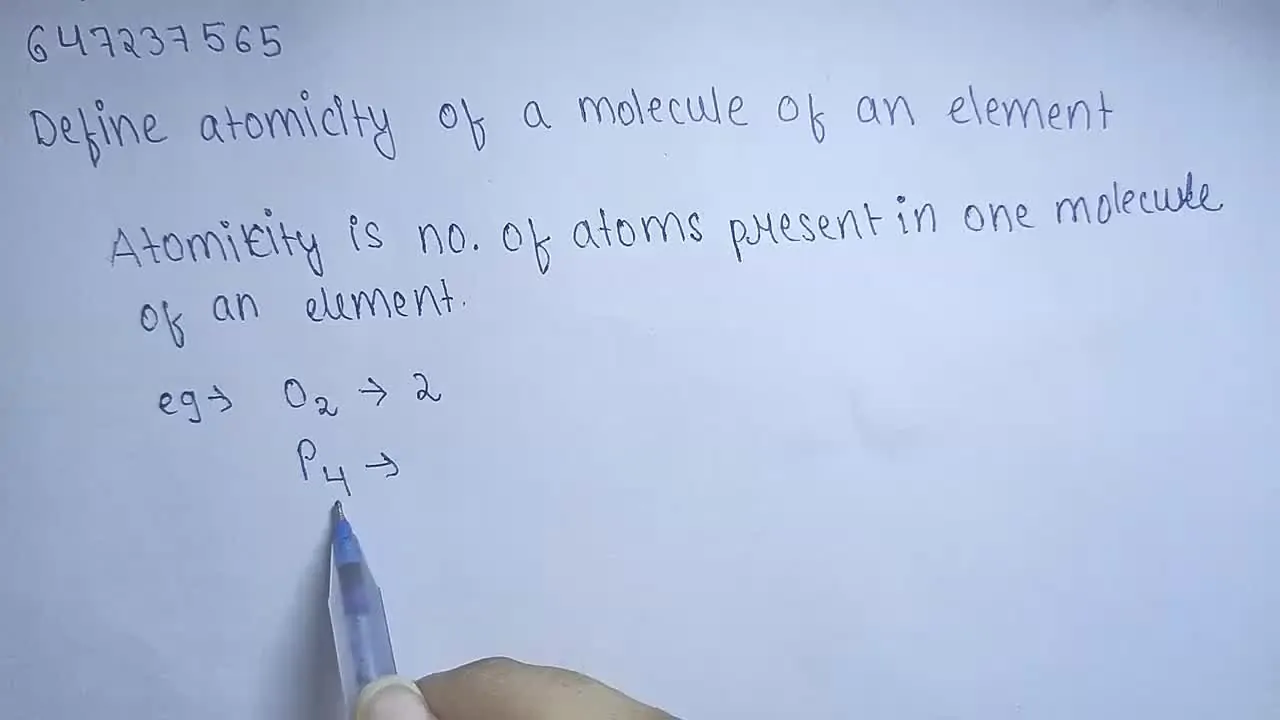 647237565
Define atomicity of a molecule of an element
Atomicity is no. of atoms present in one molecule
of an element.
eg→ O₂ → 2
P₄ →